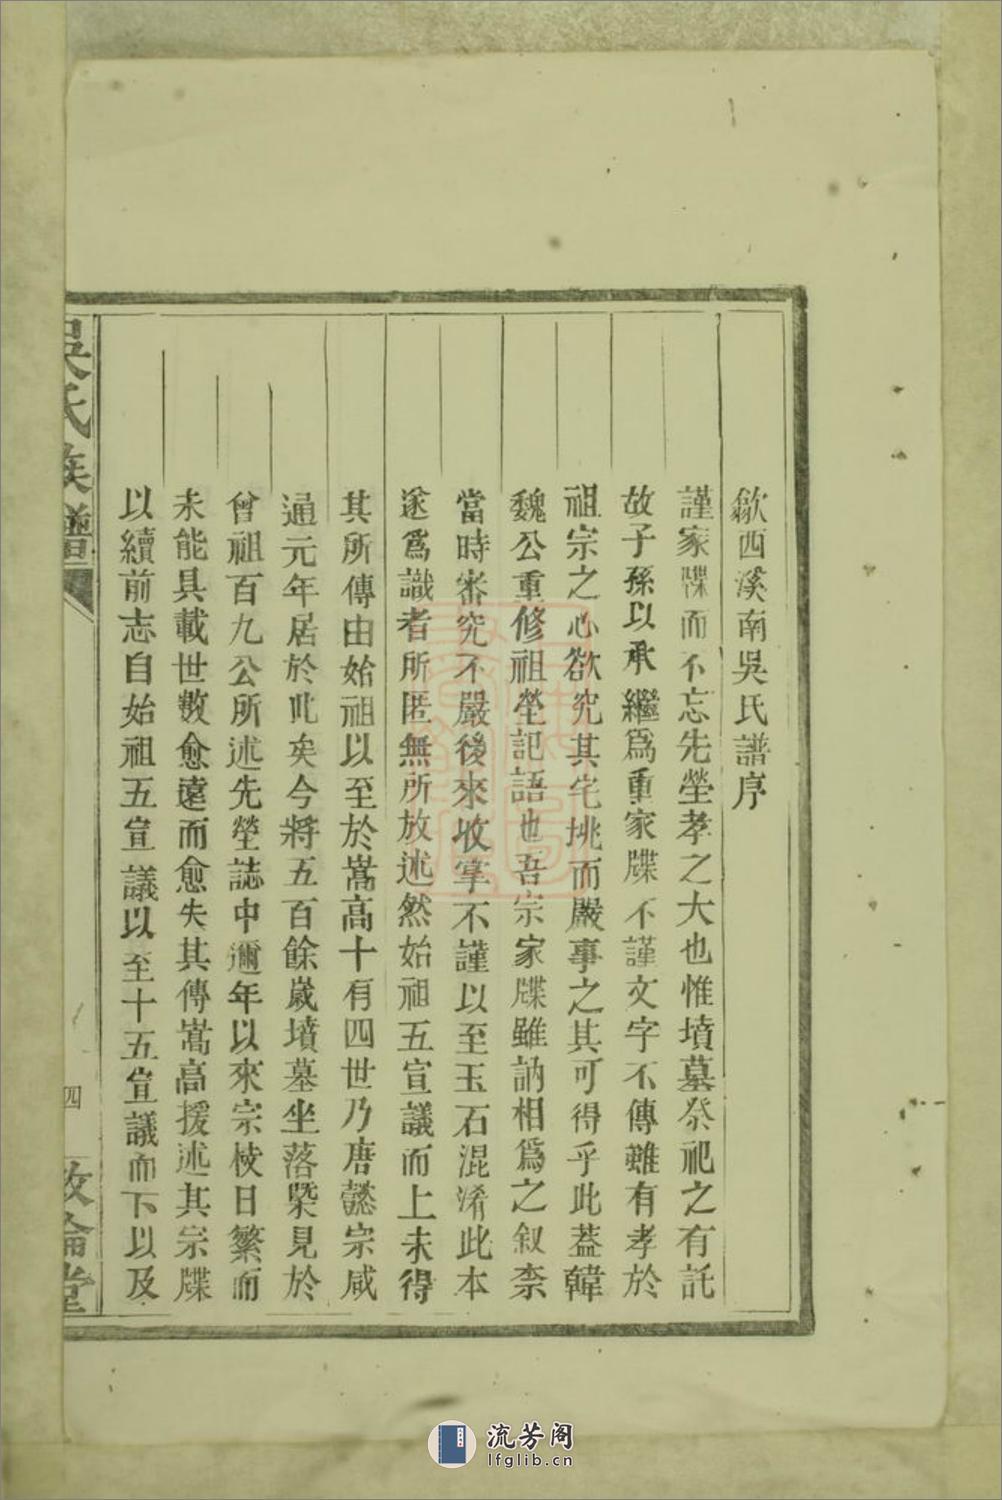 歙西溪南吳氏譜序
謹家牒而不忘先塋孝之大也惟墳墓祭祀之有託
故子孫以承繼為重家牒不謹文字不傳雖有孝於
祖宗之心欲究其宅挑而嚴事之其可得乎此蓋韓
魏公重修祖塋記語也吾宗家牒雖訥相為之叙柰
當時審究不嚴後來收掌不謹以至玉石混淆此本
遂為識者所匿無所放述然始祖五宣議而上未得
其所傳由始祖以至於嵩高十有四世乃唐懿宗咸
通元年居於此矣今將五百餘歲墳墓坐落槩見於
曾祖百九公所述先塋誌中邇年以來宗枝日繁而
未能具載世數愈遠而愈失其傳嵩高援述其宗牒
以續前志自始祖五宣議以至十五宣議而下以及
吳氏族譜
四
敘倫堂
流芳阁
lfglib.cn